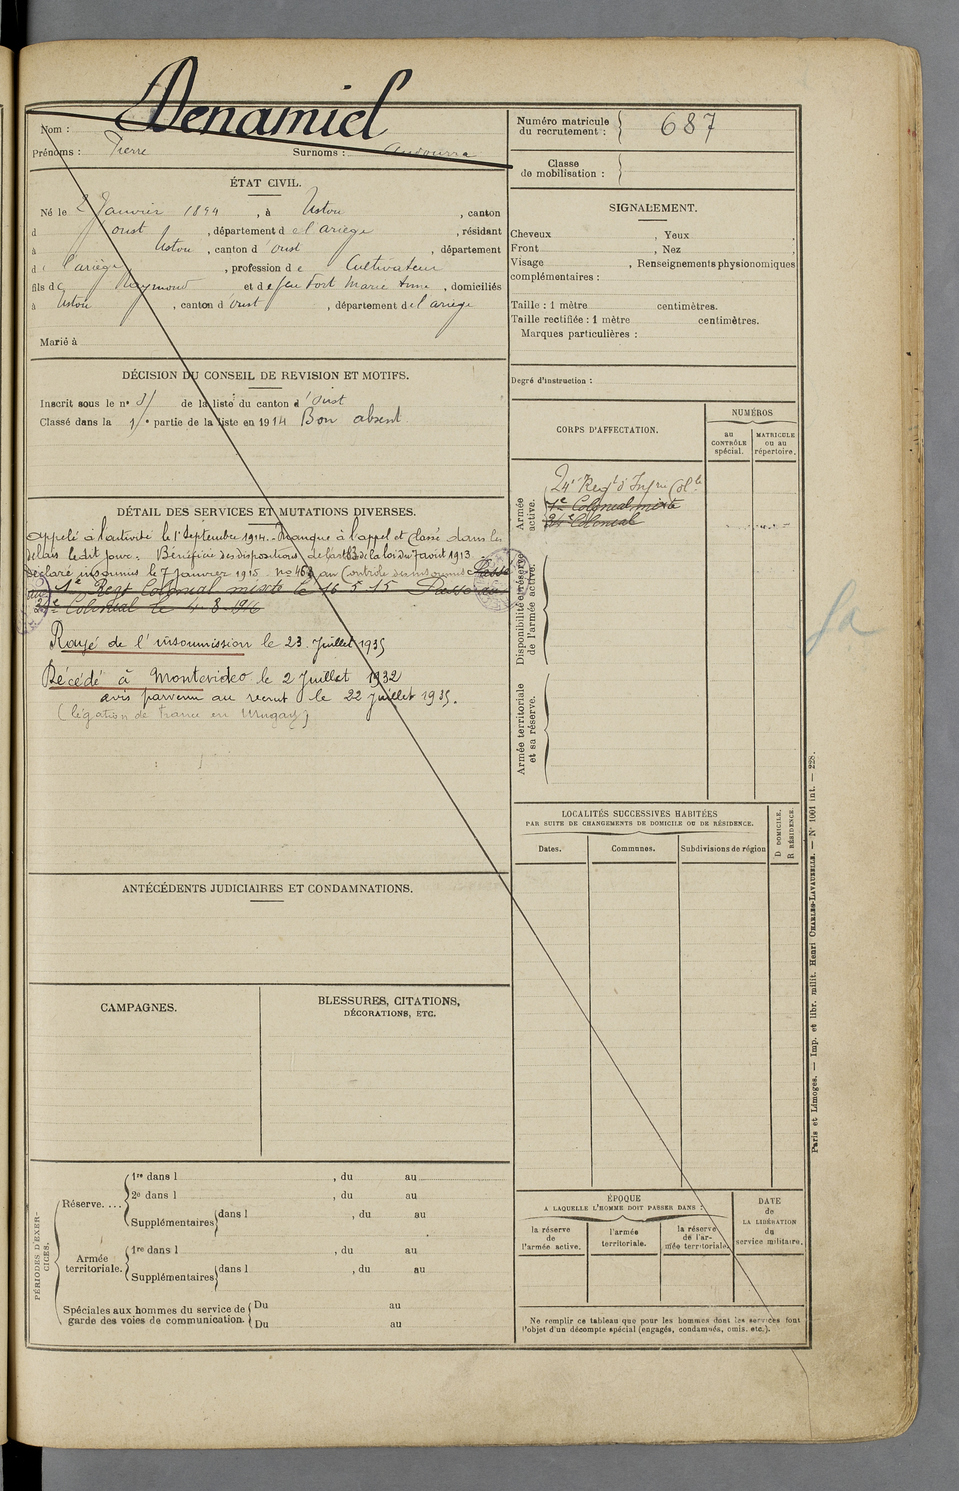 Denamiel
Nom :
Prénoms : Pierre Surnoms : Audourra
Numéro matricule du recrutement : 687
Classe de mobilisation :
ÉTAT CIVIL.
Né le 2 Janvier 1894, à Ustou, canton
d'Oust, département de l'ariège, résidant
à Ustou, canton d'Oust, département
de l'ariège, profession de Cultivateur
fils de Raymond et de feu Fort Marie Anne, domiciliés
à Ustou, canton d'Oust, département de l'ariège
Marié à
DÉCISION DU CONSEIL DE REVISION ET MOTIFS.
Inscrit sous le n° 8 de la liste du canton d'Oust
Classé dans la 1re partie de la liste en 1914 Bon absent
DÉTAIL DES SERVICES ET MUTATIONS DIVERSES.
Appelé à l'activité le 1er Septembre 1914. Manque à l'appel et classé dans les
délais le dit jour. Bénéficie des dispositions de l'art de la loi du 7 août 1913.
Déclaré insoumis le 7 Janvier 1915. n° 468 au Contrôle des insoumis Passé
au 1e Regt Colonial mixte le 16 5 15 Passé au
24e Colonial le 4-8-916
Rayé de l'insoumission le 23 Juillet 1935
Décédé à Montevideo le 2 Juillet 1932
avis parvenu au recrut le 22 juillet 1935.
(légation de France en Uruguay)
ANTÉCÉDENTS JUDICIAIRES ET CONDAMNATIONS.
CAMPAGNES.
BLESSURES, CITATIONS,
DÉCORATIONS, ETC.
PÉRIODES D'EXERCICES.
Réserve....
1re dans l , du au
2e dans l , du au
Supplémentaires dans l , du au
Armée territoriale.
1re dans l , du au
Supplémentaires dans l , du au
Spéciales aux hommes du service de garde des voies de communication.
Du au
Du au
SIGNALEMENT.
Cheveux , Yeux .
Front , Nez
Visage , Renseignements physionomiques
complémentaires :
Taille : 1 mètre centimètres.
Taille rectifiée : 1 mètre centimètres.
Marques particulières :
Degré d'instruction :
CORPS D'AFFECTATION.
NUMÉROS
au CONTRÔLE spécial.
MATRICULE ou au répertoire.
Armée active.
24e Regt d'Infrie Colle
1e Colonial mixte
24e Colonial
Disponibilité et réserve de l'armée active.
Armée territoriale et sa réserve.
fa
LOCALITÉS SUCCESSIVES HABITÉES
PAR SUITE DE CHANGEMENTS DE DOMICILE OU DE RÉSIDENCE.
D DOMICILE.
R RÉSIDENCE.
Dates. Communes. Subdivisions de région
ÉPOQUE
A LAQUELLE L'HOMME DOIT PASSER DANS :
la réserve de l'armée active.
l'armée territoriale.
la réserve de l'armée territoriale.
DATE de LA LIBÉRATION du service militaire.
Ne remplir ce tableau que pour les hommes dont les services font
l'objet d'un décompte spécial (engagés, condamnés, omis. etc.).
Paris et Limoges. — Imp. et libr. milit. Henri CHARLES-LAVAUZELLE. — N° 1001 int. — 228.